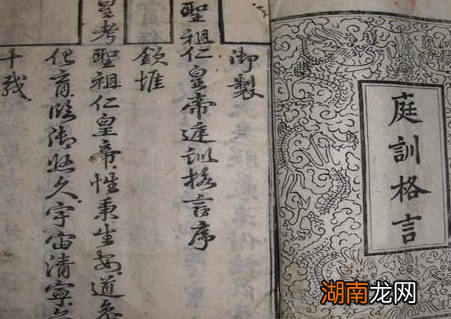 庭訓格言
御製
聖祖仁皇帝庭訓格言序
欽惟
皇考聖祖仁皇帝性秉生安道叅
化育臨御悠久宇宙清寧六
十載
湖南龙网